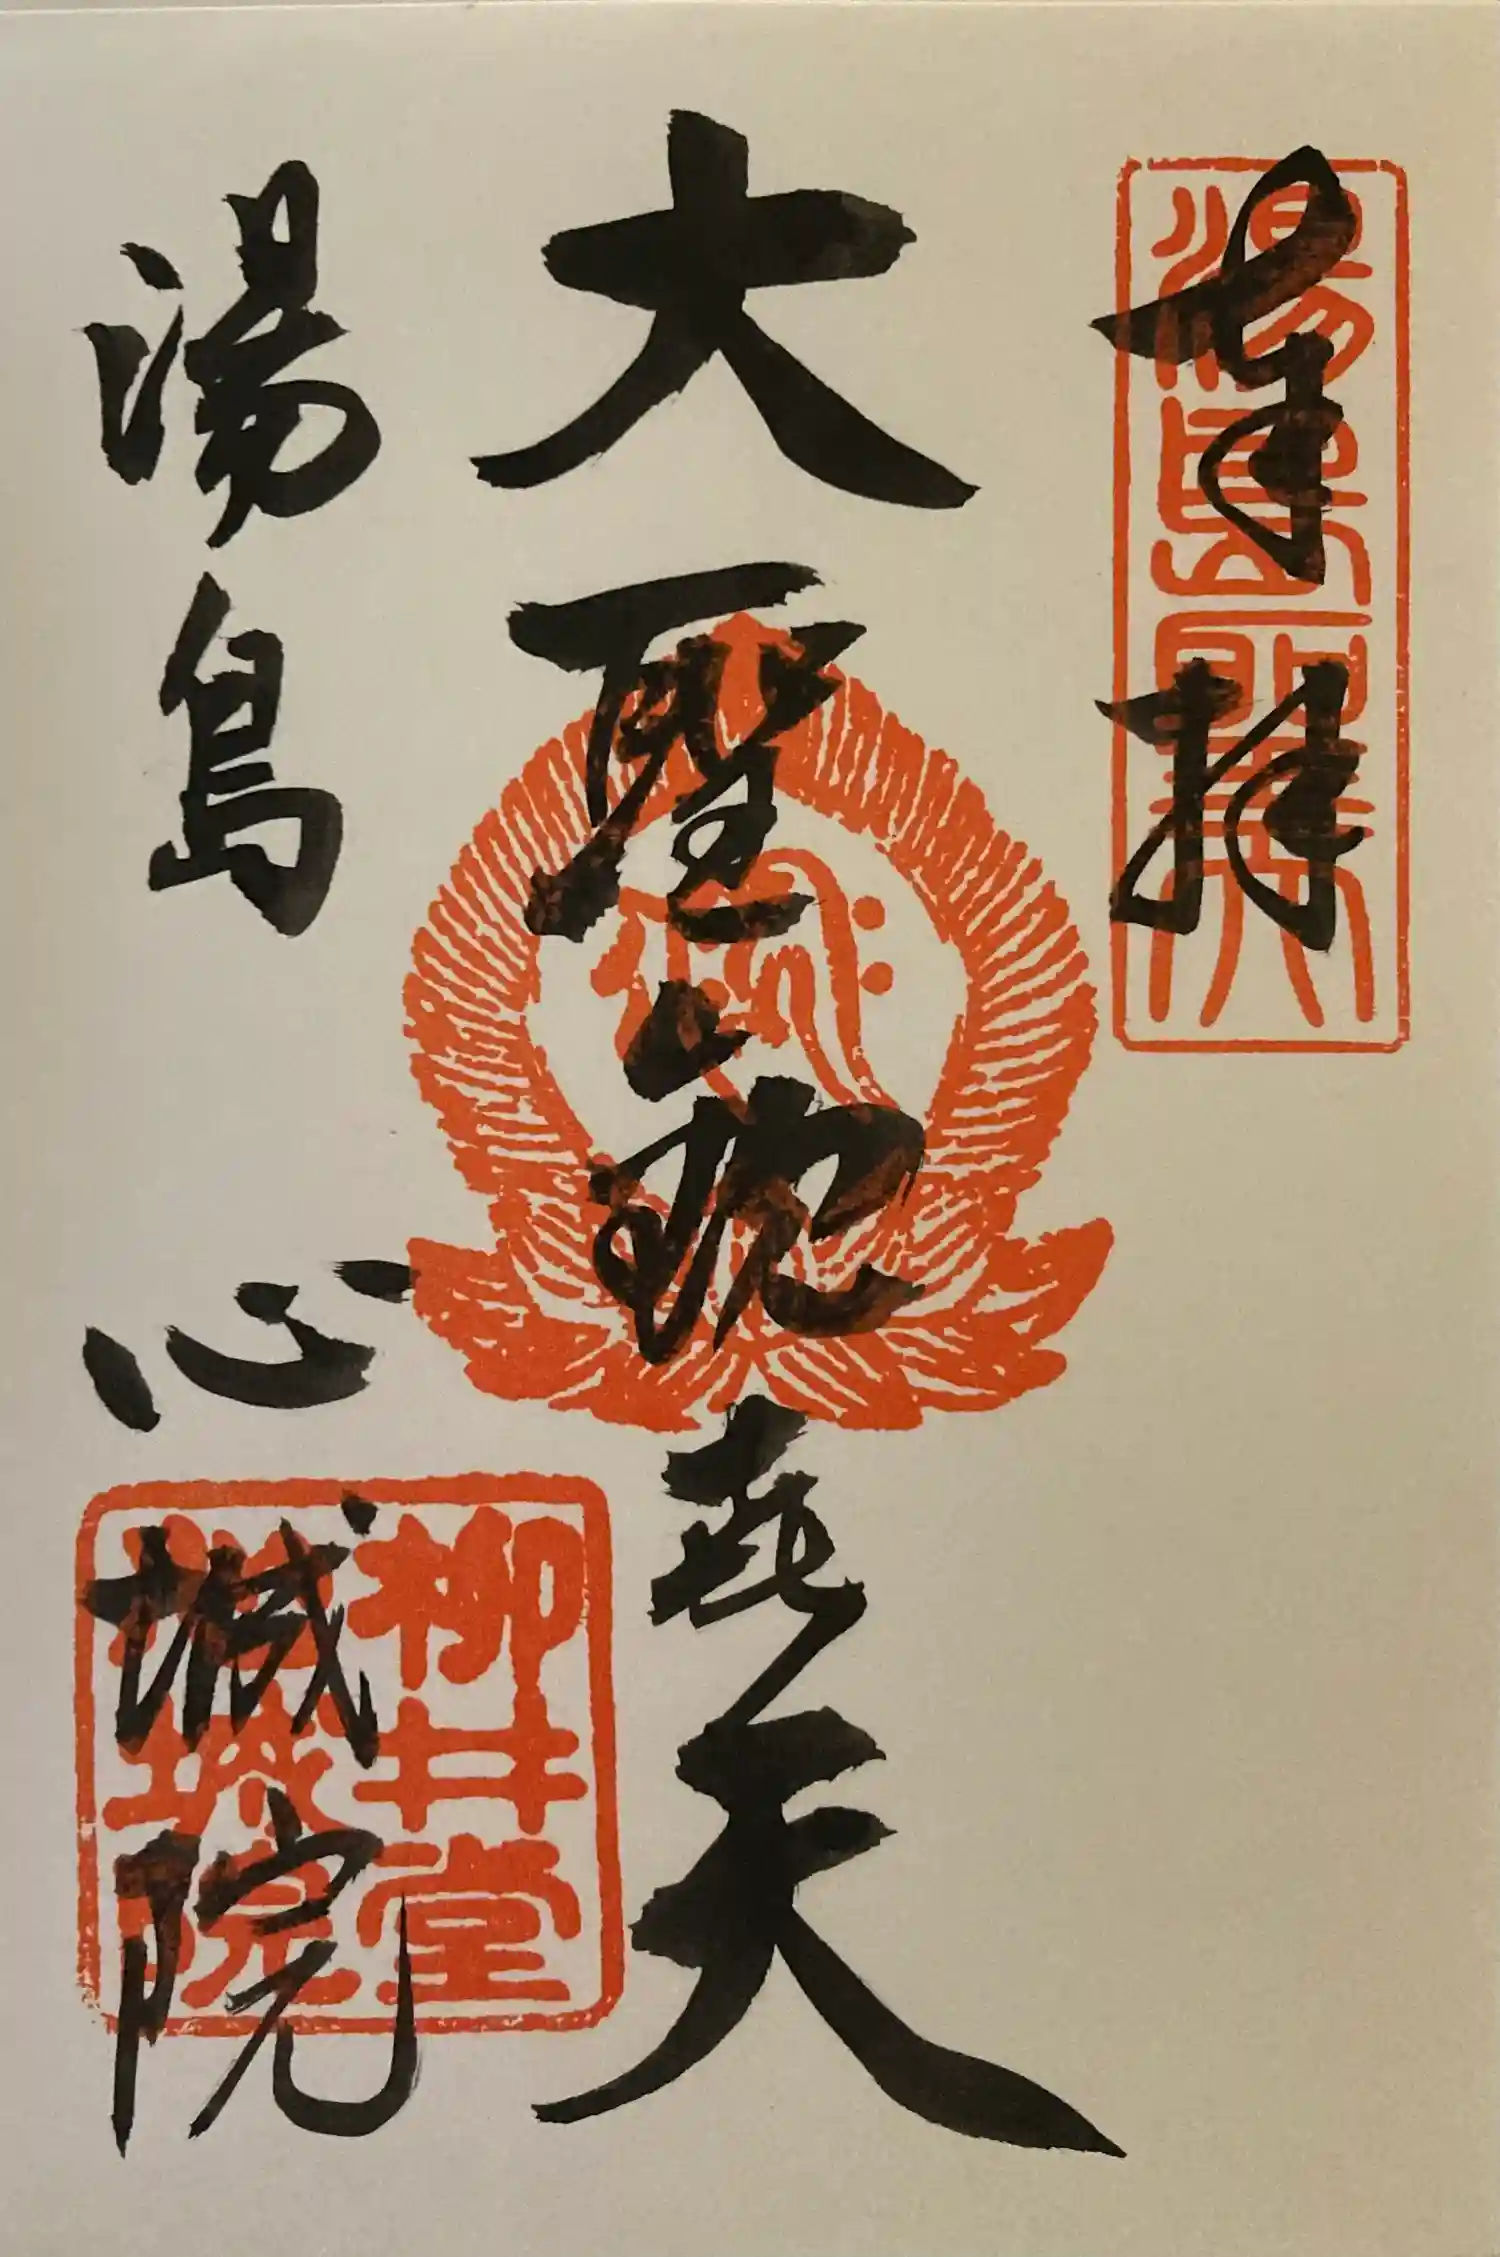 奉拝
湯島聖天
大聖歓喜天
湯島 心城院
柳井堂
心城院